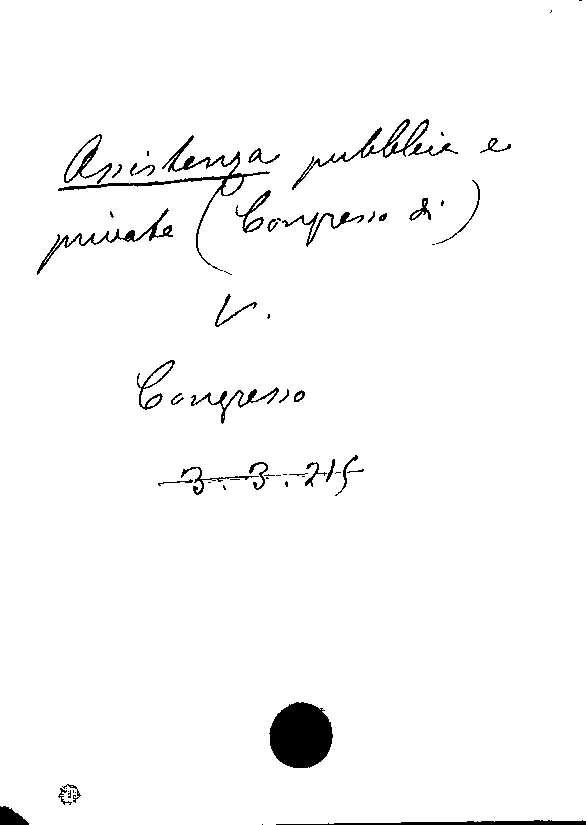 Assistenza pubblica e
privata (Congresso di)
V.
Congresso
3.3.215